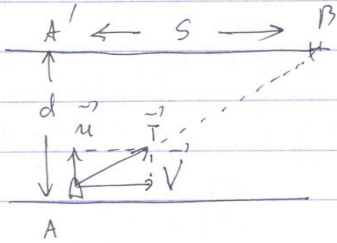 A' ← S → B
d
u⃗ T⃗
V⃗
A